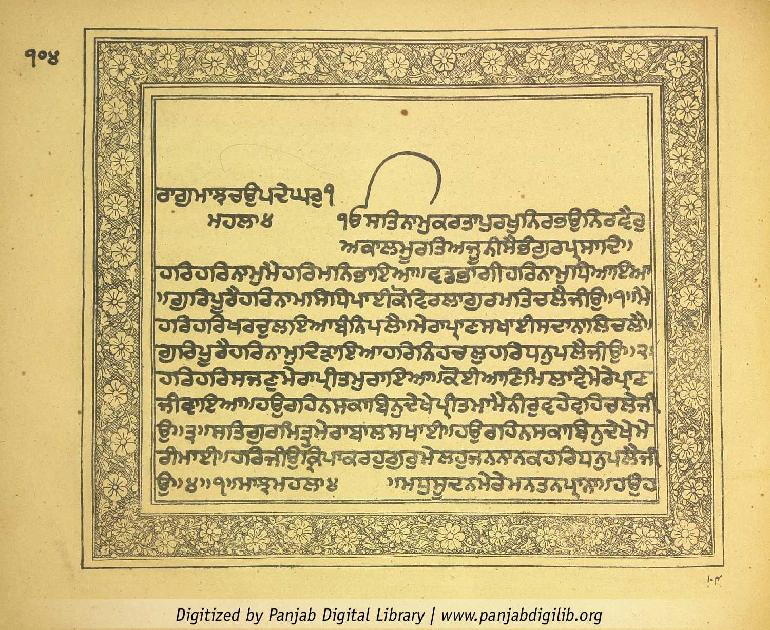 ੧੦੪
ਰਾਗੁਮਾਝਚਉਪਦੇਘਰੁ੧
ਮਹਲਾ੪ ੧ੴਸਤਿਨਾਮੁਕਰਤਾਪੁਰਖੁਨਿਰਭਉਨਿਰਵੈਰੁ
ਅਕਾਲਮੂਰਤਿਅਜੂਨੀਸੈਭੰਗੁਰਪ੍ਰਸਾਦਿ॥
ਹਰਿਹਰਿਨਾਮੁਮੈਹਰਿਮਨਿਭਾਇਆ॥ਵਡਭਾਗੀਹਰਿਨਾਮੁਧਿਆਇਆ
॥ਗੁਰਿਪੂਰੈਹਰਿਨਾਮਸਿਧਿਪਾਈਕੋਵਿਰਲਾਗੁਰਮਤਿਚਲੈਜੀਉ॥੧॥ਮੈ
ਹਰਿਹਰਿਖਰਚੁਲਇਆਬੰਨਿਪਲੈ॥ਮੇਰਾਪ੍ਰਾਣਸਖਾਈਸਦਾਨਾਲਿਚਲੈ॥
ਗੁਰਿਪੂਰੈਹਰਿਨਾਮੁਦਿੜਾਇਆਹਰਿਨਿਹਚਲੁਹਰਿਧਨੁਪਲੈਜੀਉ॥੨॥
ਹਰਿਹਰਿਸਜਣੁਮੇਰਾਪ੍ਰੀਤਮੁਰਾਇਆ॥ਕੋਈਆਣਿਮਿਲਾਵੈਮੇਰੇਪ੍ਰਾਣ
ਜੀਵਾਇਆ॥ਹਉਰਹਿਨਸਕਾਬਿਨੁਦੇਖੇਪ੍ਰੀਤਮਾਮੈਨੀਰੁਵਹੇਵਹਿਚਲੈਜੀ
ਉ॥੩॥ਸਤਿਗੁਰਮਿਤ੍ਰੁਮੇਰਾਬਾਲਸਖਾਈ॥ਹਉਰਹਿਨਸਕਾਬਿਨੁਦੇਖੇਮੇ
ਰੀਮਾਈ॥ਹਰਿਜੀਉਕ੍ਰਿਪਾਕਰਹੁਗੁਰੁਮੇਲਹੁਜਨਨਾਨਕਹਰਿਧਨੁਪਲੈਜੀ
ਉ॥੪॥੧॥ਮਾਝਮਹਲਾ੪ ॥ਮਧੁਸੂਦਨਮੇਰੇਮਨਤਨਪ੍ਰਾਨਾ॥ਹਉਹ
Digitized by Panjab Digital Library | www.panjabdigilib.org